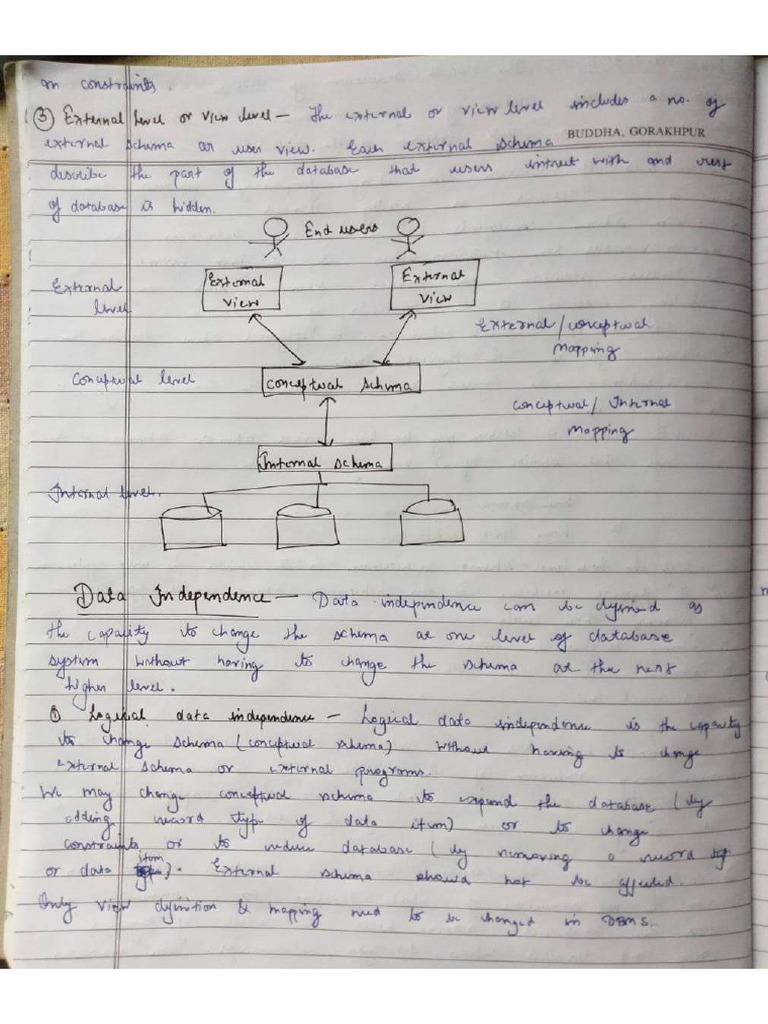 on constraints.
③ External level or view level - The external or view level includes a no. of
BUDDHA, GORAKHPUR
external schema or user view. Each external schema
describe the part of the database that users intrect with and rest
of database is hidden.
End users
External level
External view
External view
External / conceptual Mapping
Conceptual level
Conceptual schma
Conceptual / Internal Mapping
Internal schema
Internal level.
Data Independence - Data independence can be defined as
the capacity to change the schema at one level of database
system without having to change the schema at the next
higher level.
① Logical data independence - Logical data independence is the capacity
to change schema (conceptual shema) without having to change
external schema or external programs.
We may change conceptual schema to expand the database (by
adding record type of data item) or to change
constraints or to reduce database (by removing a record typ
or data item). External schema should not be affected.
Only view definition & mapping need to be changed in DBMS.